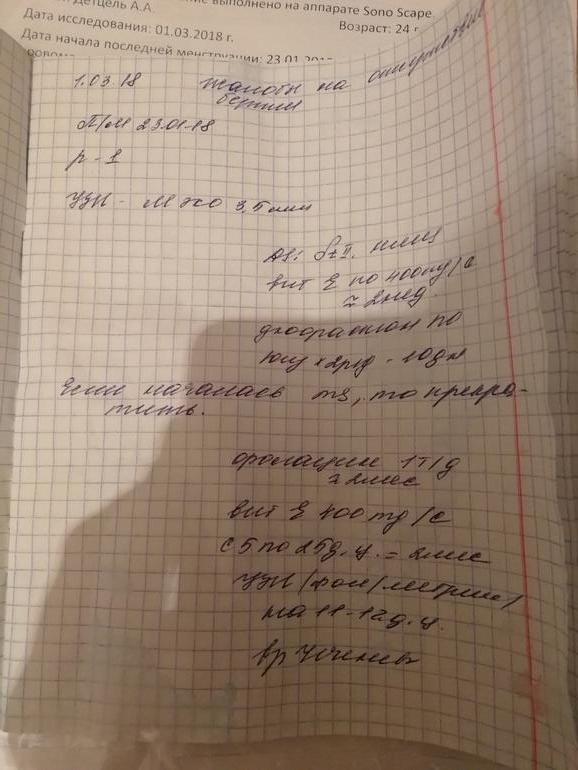 Детцель А.А.
выполнено на аппарате Sono Scape
Дата исследования: 01.03.2018 г.
Возраст: 24 г
Дата начала последней менструации: 23.01.201
1.03.18 жалобы на отсутствие
П/М 23.01.18
р - 1
УЗИ - М эхо 3,5 мм
Ds:
вит Е по 400 mg/с
≈ 2нед.
дюфастон по
10mg × 2р/д - 10дн
Если началась ms, то прекра-
тить.
фолацин 1т/д
≈ 2мес
вит Е 400 mg/с
с 5 по 25 д.ц. = 2мес
УЗИ /фол/метрия/
на 11-12 д.ц.
вр